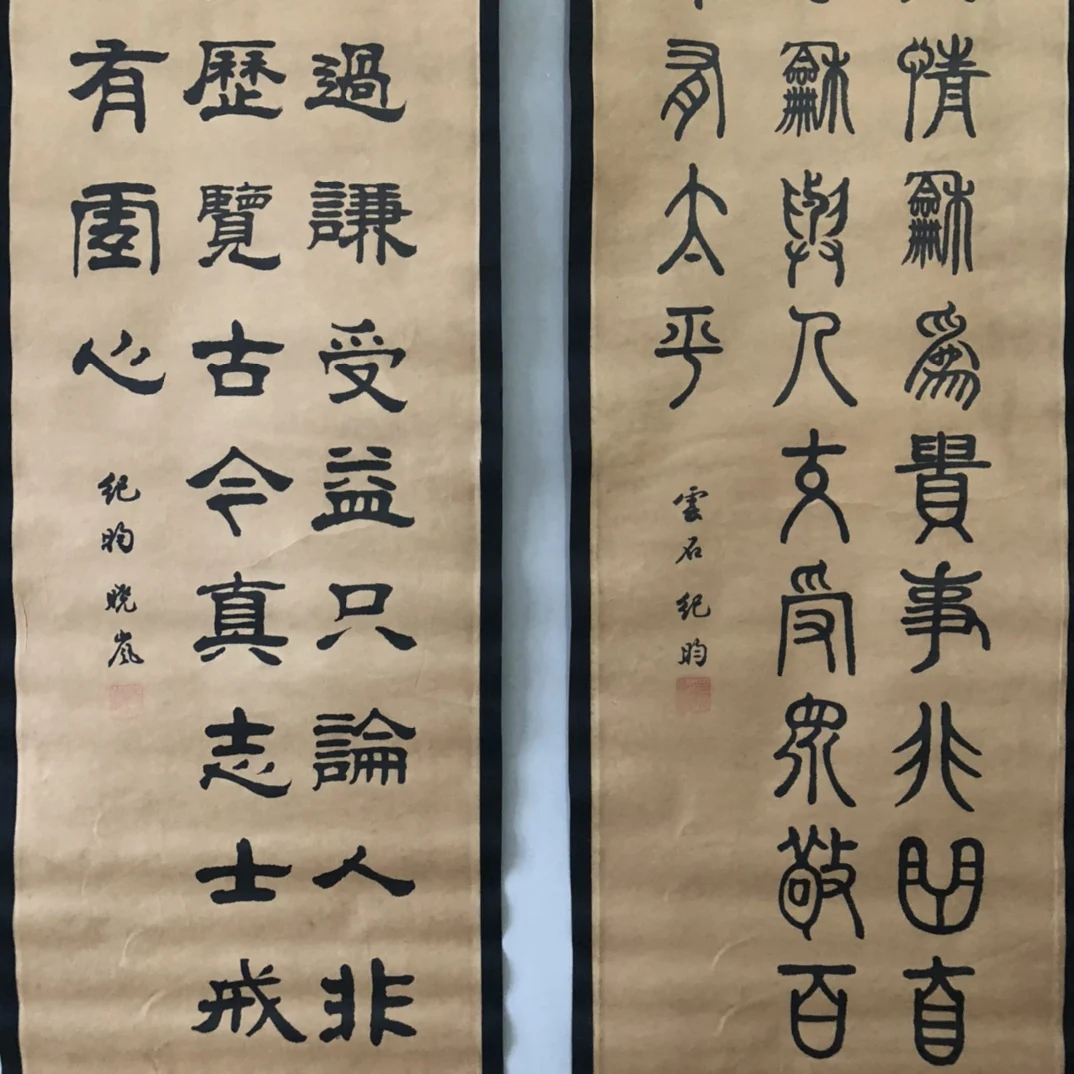 情龢為貴事非曲直
龢與人受眾敬百
有太平
雲石 紀昀
過謙受益只論人非
歷覽古今真志士戒
有心
紀昀 曉嵐